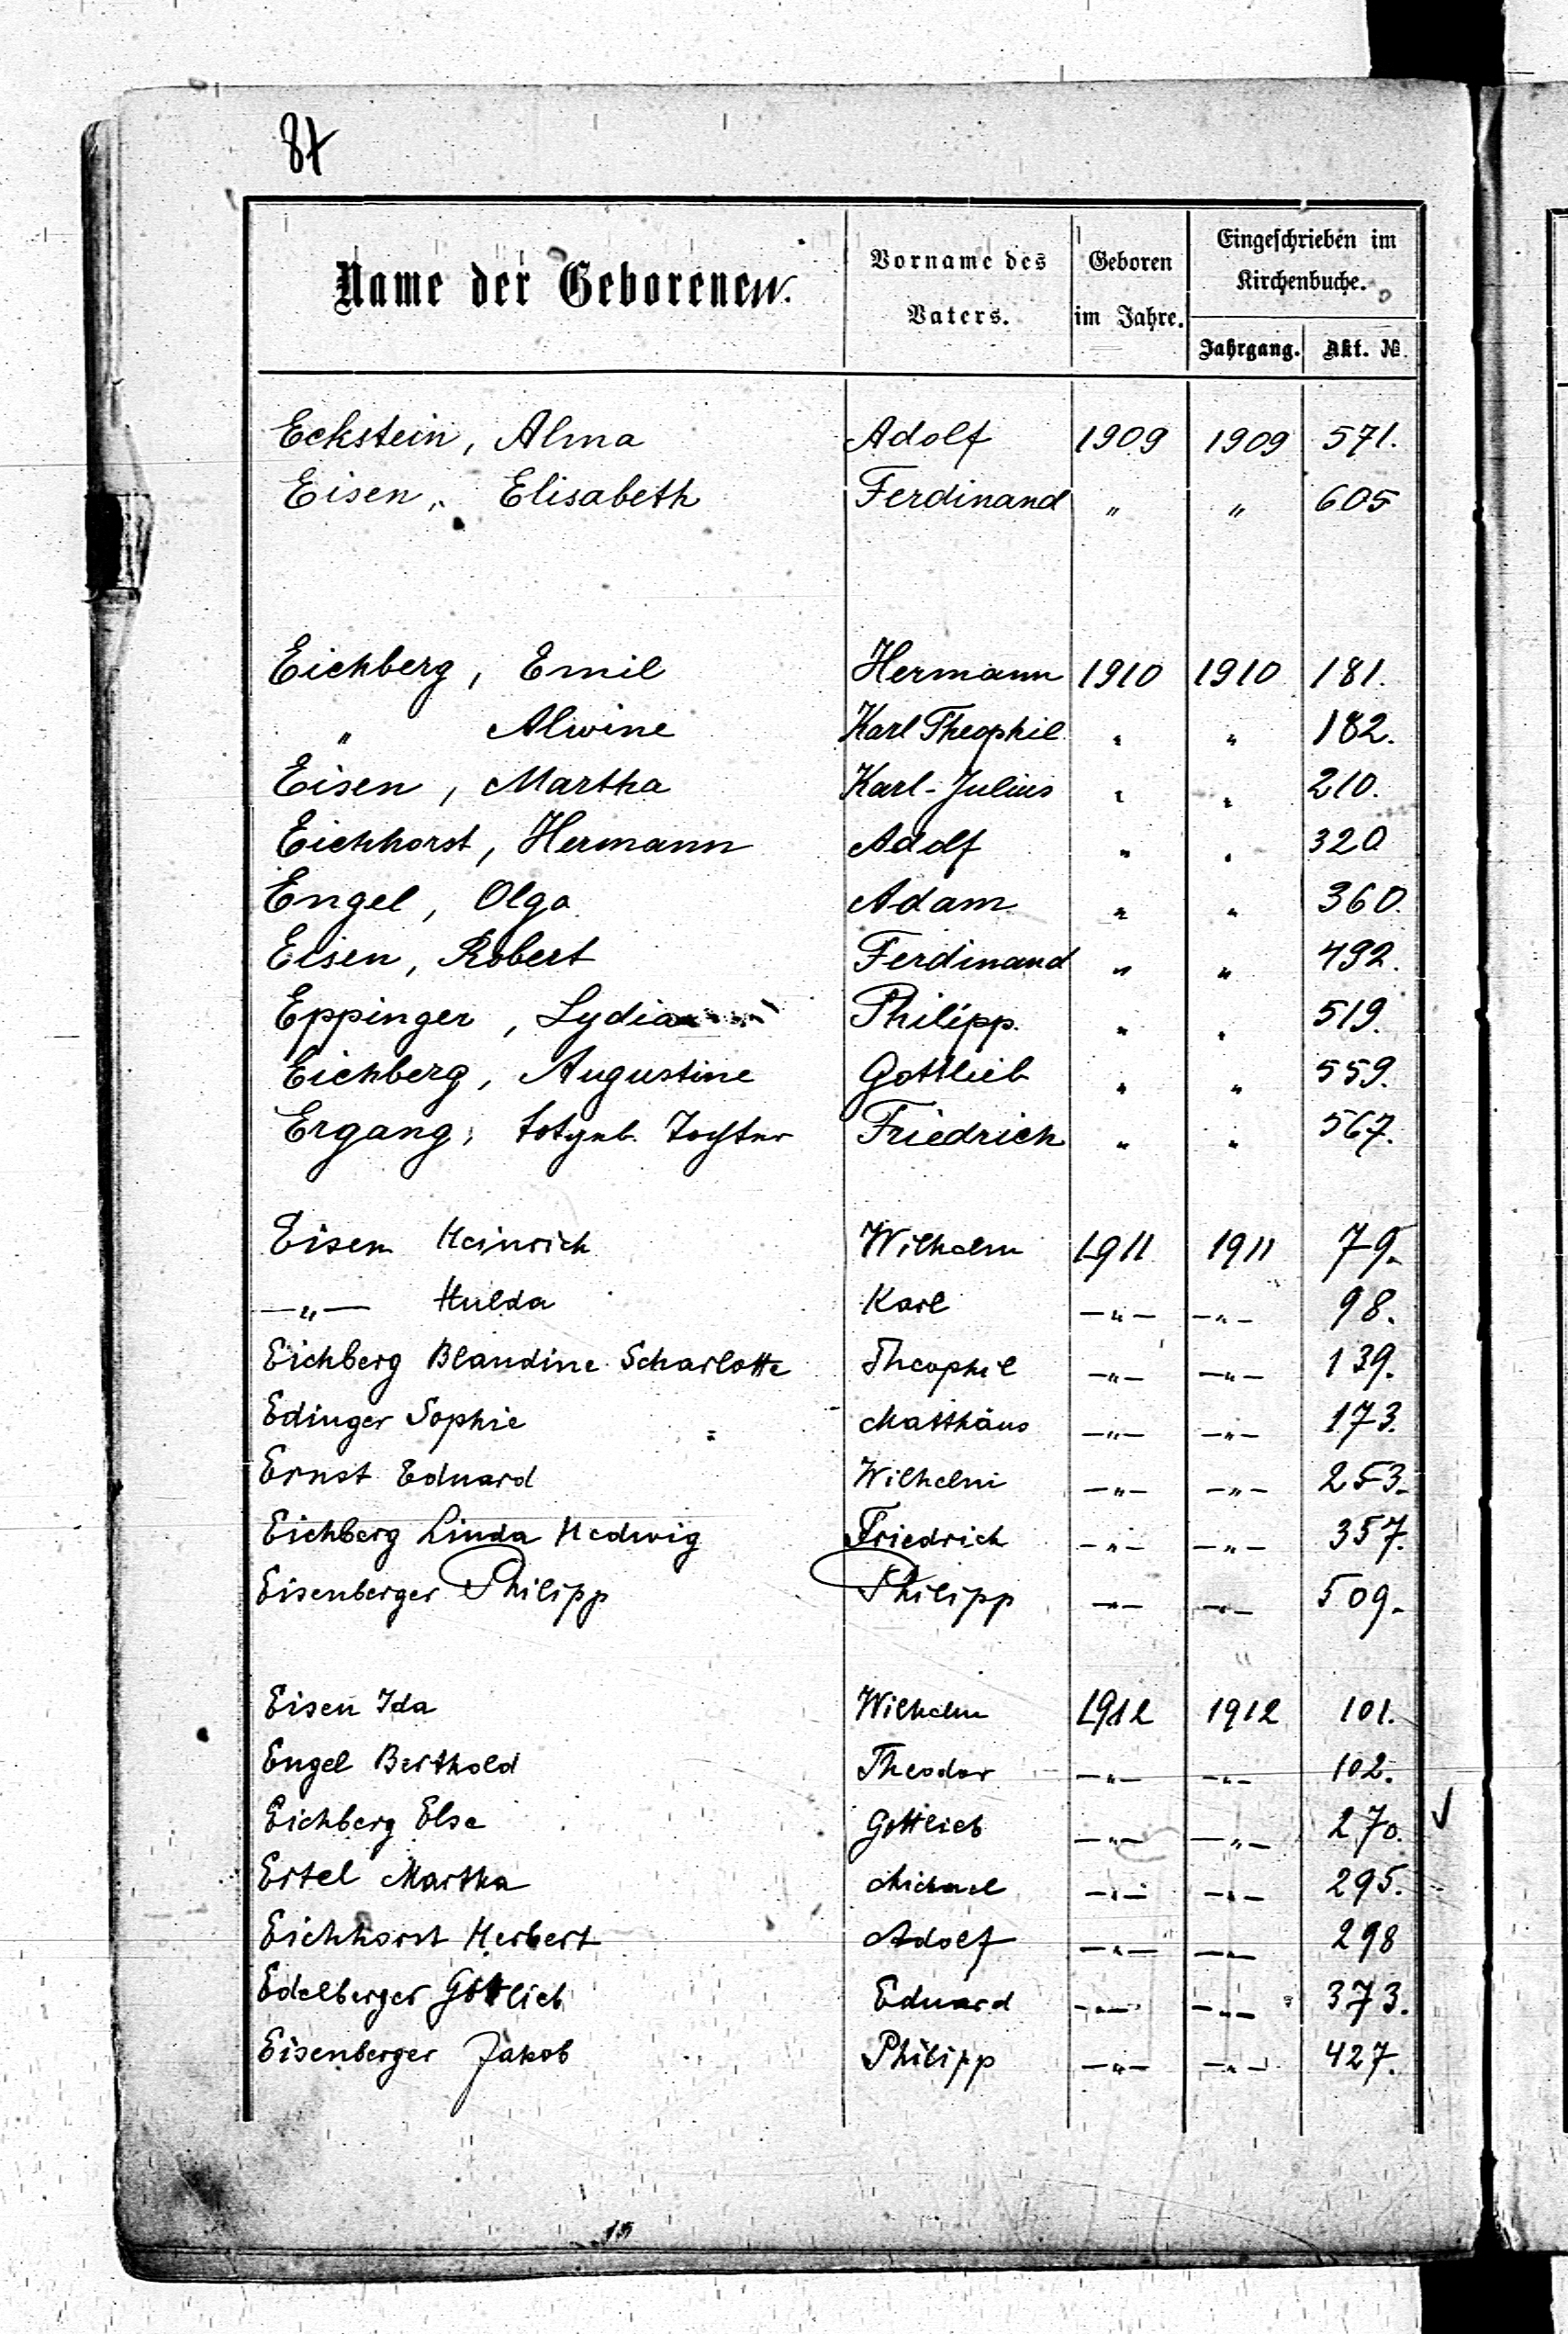 84
Name der Geborenen.
Vorname des Vaters.
Geboren im Jahre.
Eingeschrieben im Kirchenbuche.
Jahrgang. Akt. №
Eckstein, Alma Adolf 1909 1909 571.
Eisen, Elisabeth Ferdinand " " 605
Eichberg, Emil Hermann 1910 1910 181.
" Alwine Karl Theophil " " 182.
Eisen, Martha Karl-Julius " " 210.
Eichhorst, Hermann Adolf " " 320
Engel, Olga Adam " " 360.
Eisen, Robert Ferdinand " " 492.
Eppinger, Lydia Philipp. " " 519.
Eichberg, Augustine Gottlieb " " 559.
Ergang, totgeb. Tochter Friedrich " " 567.
Eisen Heinrich Wilhelm 1911 1911 79.
—"— Hulda Karl —"— —"— 98.
Eichberg Blandine Scharlotte Theophil —"— —"— 139.
Edinger Sophie Matthäus —"— —"— 173.
Ernst Eduard Wilhelm —"— —"— 253.
Eichberg Linda Hedwig Friedrich —"— —"— 357.
Eisenberger Philipp Philipp —"— —"— 509.
Eisen Ida Wilhelm 1912 1912 101.
Engel Berthold Theodor —"— —"— 102.
Eichberg Else Gottlieb —"— —"— 270. ✓
Ertel Martha Michael —"— —"— 295.
Eichhorst Herbert Adolf —"— —"— 298
Edelberger Gottlieb Eduard —"— —"— 373.
Eisenberger Jakob Philipp —"— —"— 427.